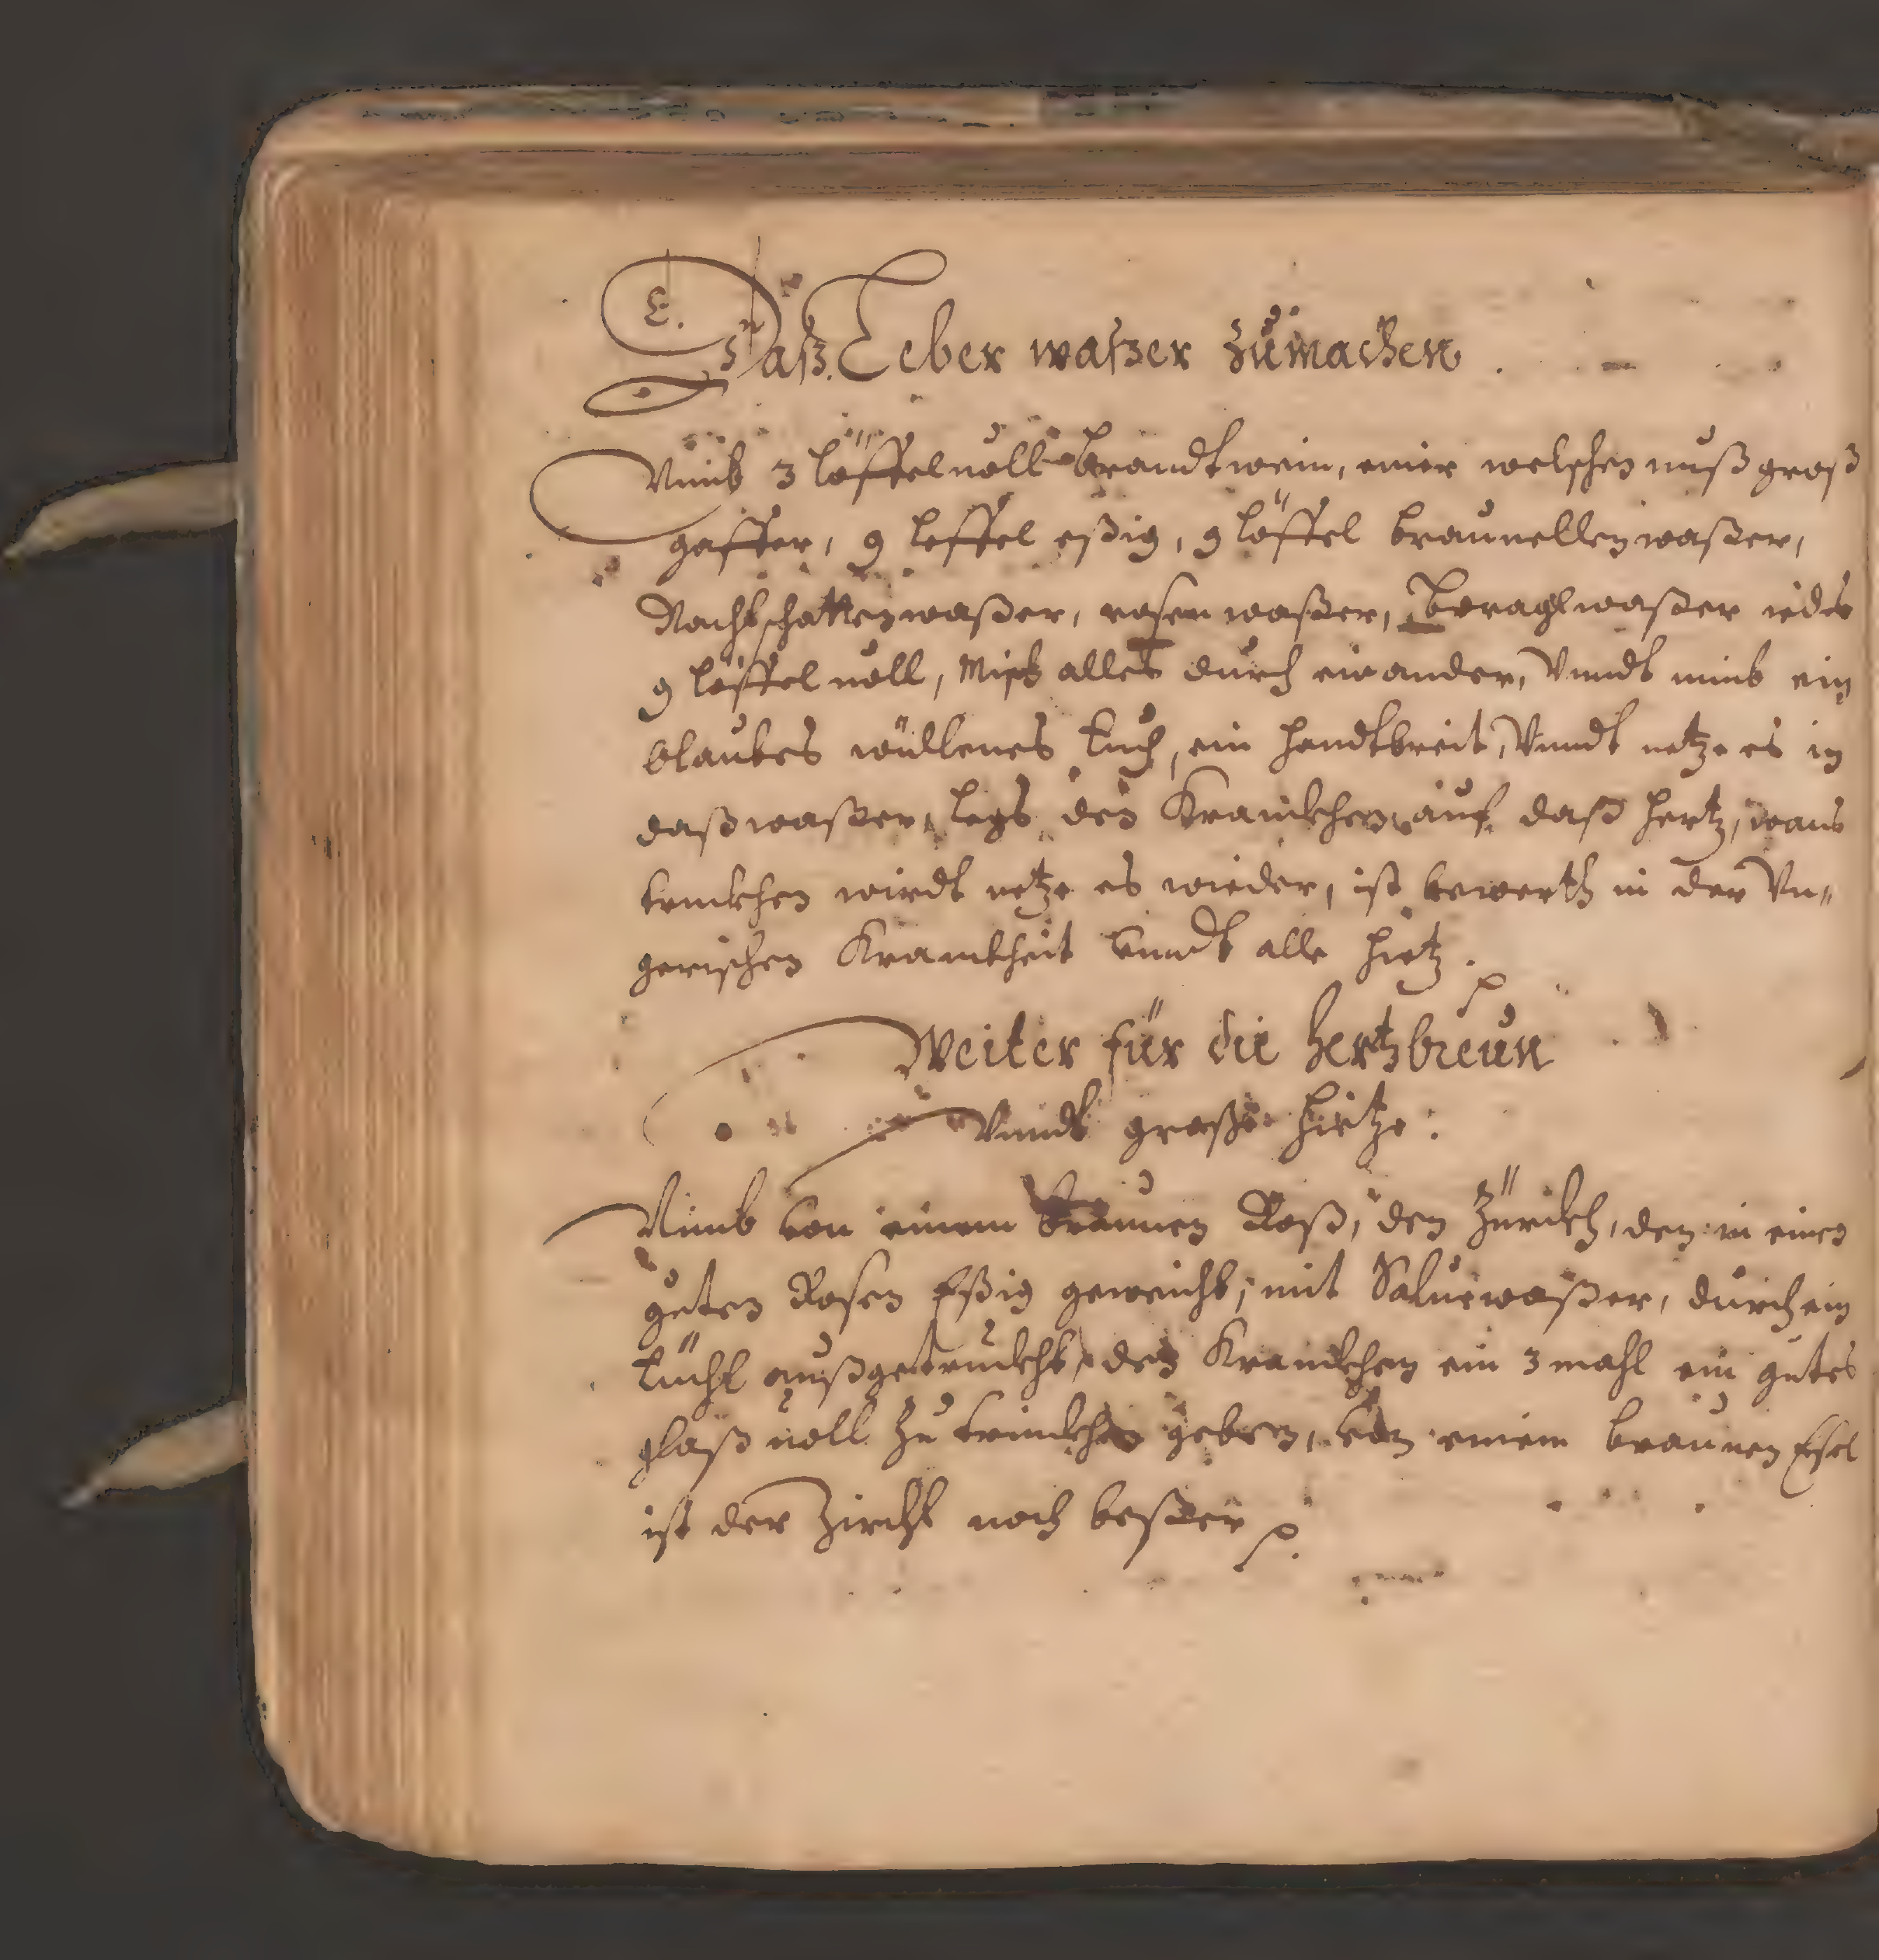 Daß Leber waßer Zumachen
Nimb 3 löffel voll brandtwein, einer welschen nuß groß
gaffer, 9 leffel eßig, 9 löffel braunellen waßer,
Nachtschatten waßer, rosen waßer, Boragl waßer iedes
9 löffel voll, Misch alles durch einander, Vnndt nimb ein
blaubes wüllenes tuch, ein handtbreit, Vnndt netze es in
daß waßer, legs den Kranckhen auf daß hertz, wans
truckhen wirdt netze es wieder, ist bewerth in der Vn„
gerischen Kranckheit vnndt alle hietz.
Weiter für die hertzbreun
Vnndt große hietze:
Nimb von einem braunen Roß, den Zürckh, den in einen
guten Rosen Eßig geweicht, mit Salue waßer, durch ein
tüchl außgetruckht, den Kranckhen ein 3 mahl ein gutes
glaß voll Zu trinckhen geben, von einem braunen Esel
ist der Zirckh noch beßer